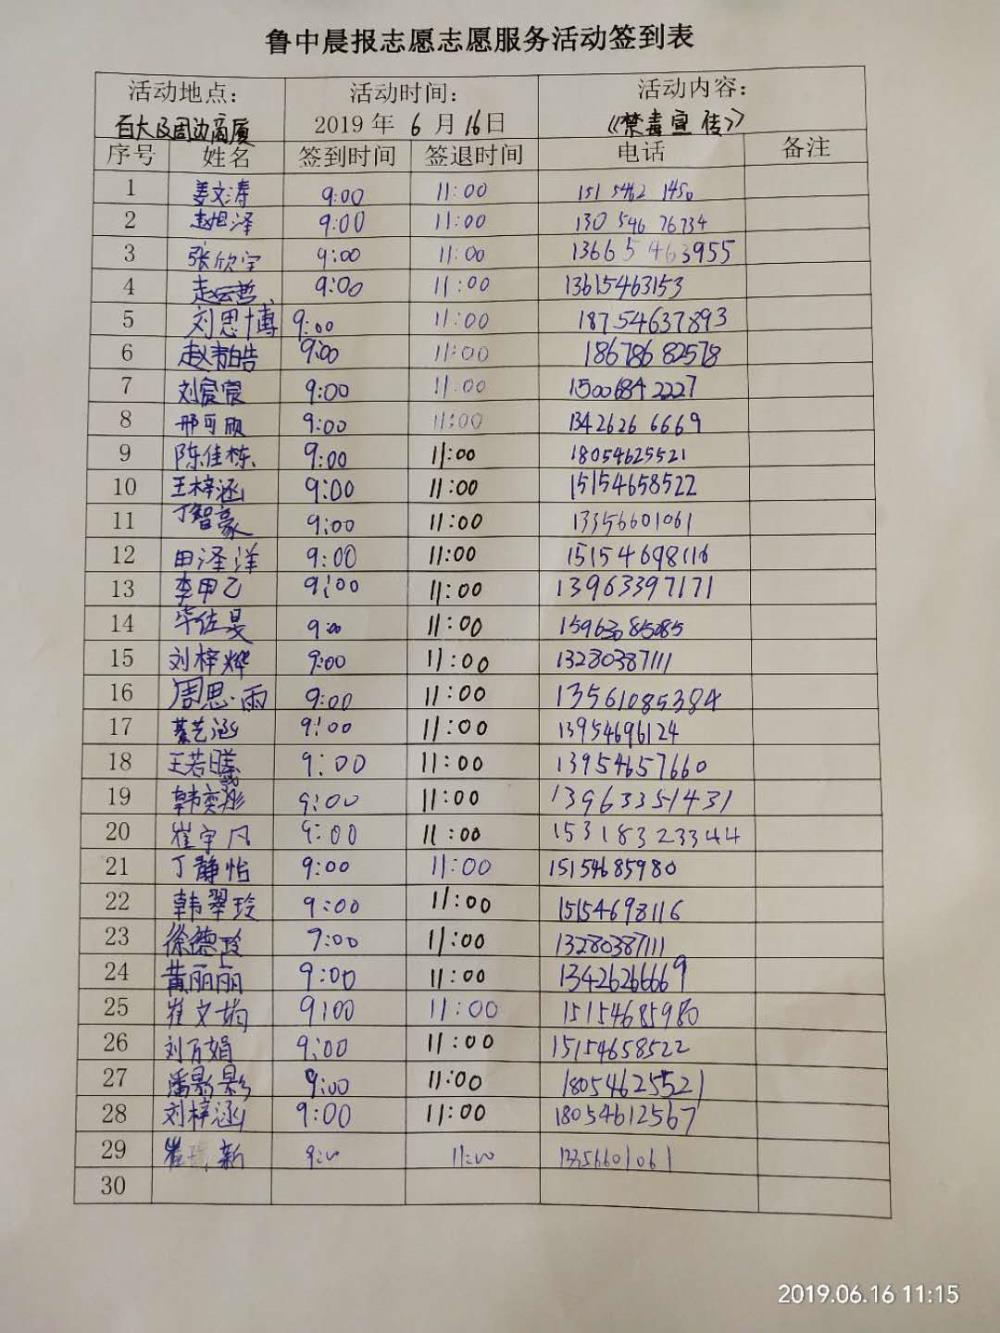 鲁中晨报志愿志愿服务活动签到表
活动地点： 活动时间： 活动内容：
百大及周边商厦 2019 年 6 月 16日 《禁毒宣传》
序号 姓名 签到时间 签退时间 电话 备注
1 姜文涛 9:00 11:00 151 5462 1450
2 赵旭泽 9:00 11:00 130 546 76734
3 张欣宇 9:00 11:00 13665 463955
4 赵云哲 9:00 11:00 13615463153
5 刘思博 9:00 11:00 18754637893
6 赵靖皓 9:00 11:00 18678682578
7 刘宸宸 9:00 11:00 15006842227
8 邢可欣 9:00 11:00 1342626 6669
9 陈佳栋 9:00 11:00 18054625521
10 王梓涵 9:00 11:00 15154658522
11 丁智豪 9:00 11:00 13356601061
12 田泽洋 9:00 11:00 15154698116
13 李甲乙 9:00 11:00 13963397171
14 毕佐昊 9:00 11:00 15963085085
15 刘梓烨 9:00 11:00 13280387111
16 周思雨 9:00 11:00 13561085384
17 綦艺涵 9:00 11:00 13954696124
18 王若曦 9:00 11:00 13954657660
19 韩奕彤 9:00 11:00 13963351431
20 崔宇凡 9:00 11:00 15318323344
21 丁静怡 9:00 11:00 15154685980
22 韩翠玲 9:00 11:00 15154698116
23 徐德玲 9:00 11:00 13280387111
24 黄丽丽 9:00 11:00 13426266669
25 崔文娟 9:00 11:00 15154685980
26 刘万娟 9:00 11:00 15154658522
27 潘影影 9:00 11:00 18054625521
28 刘梓涵 9:00 11:00 18054612567
29 崔 新 9:00 11:00 13356601061
30
2019.06.16 11:15